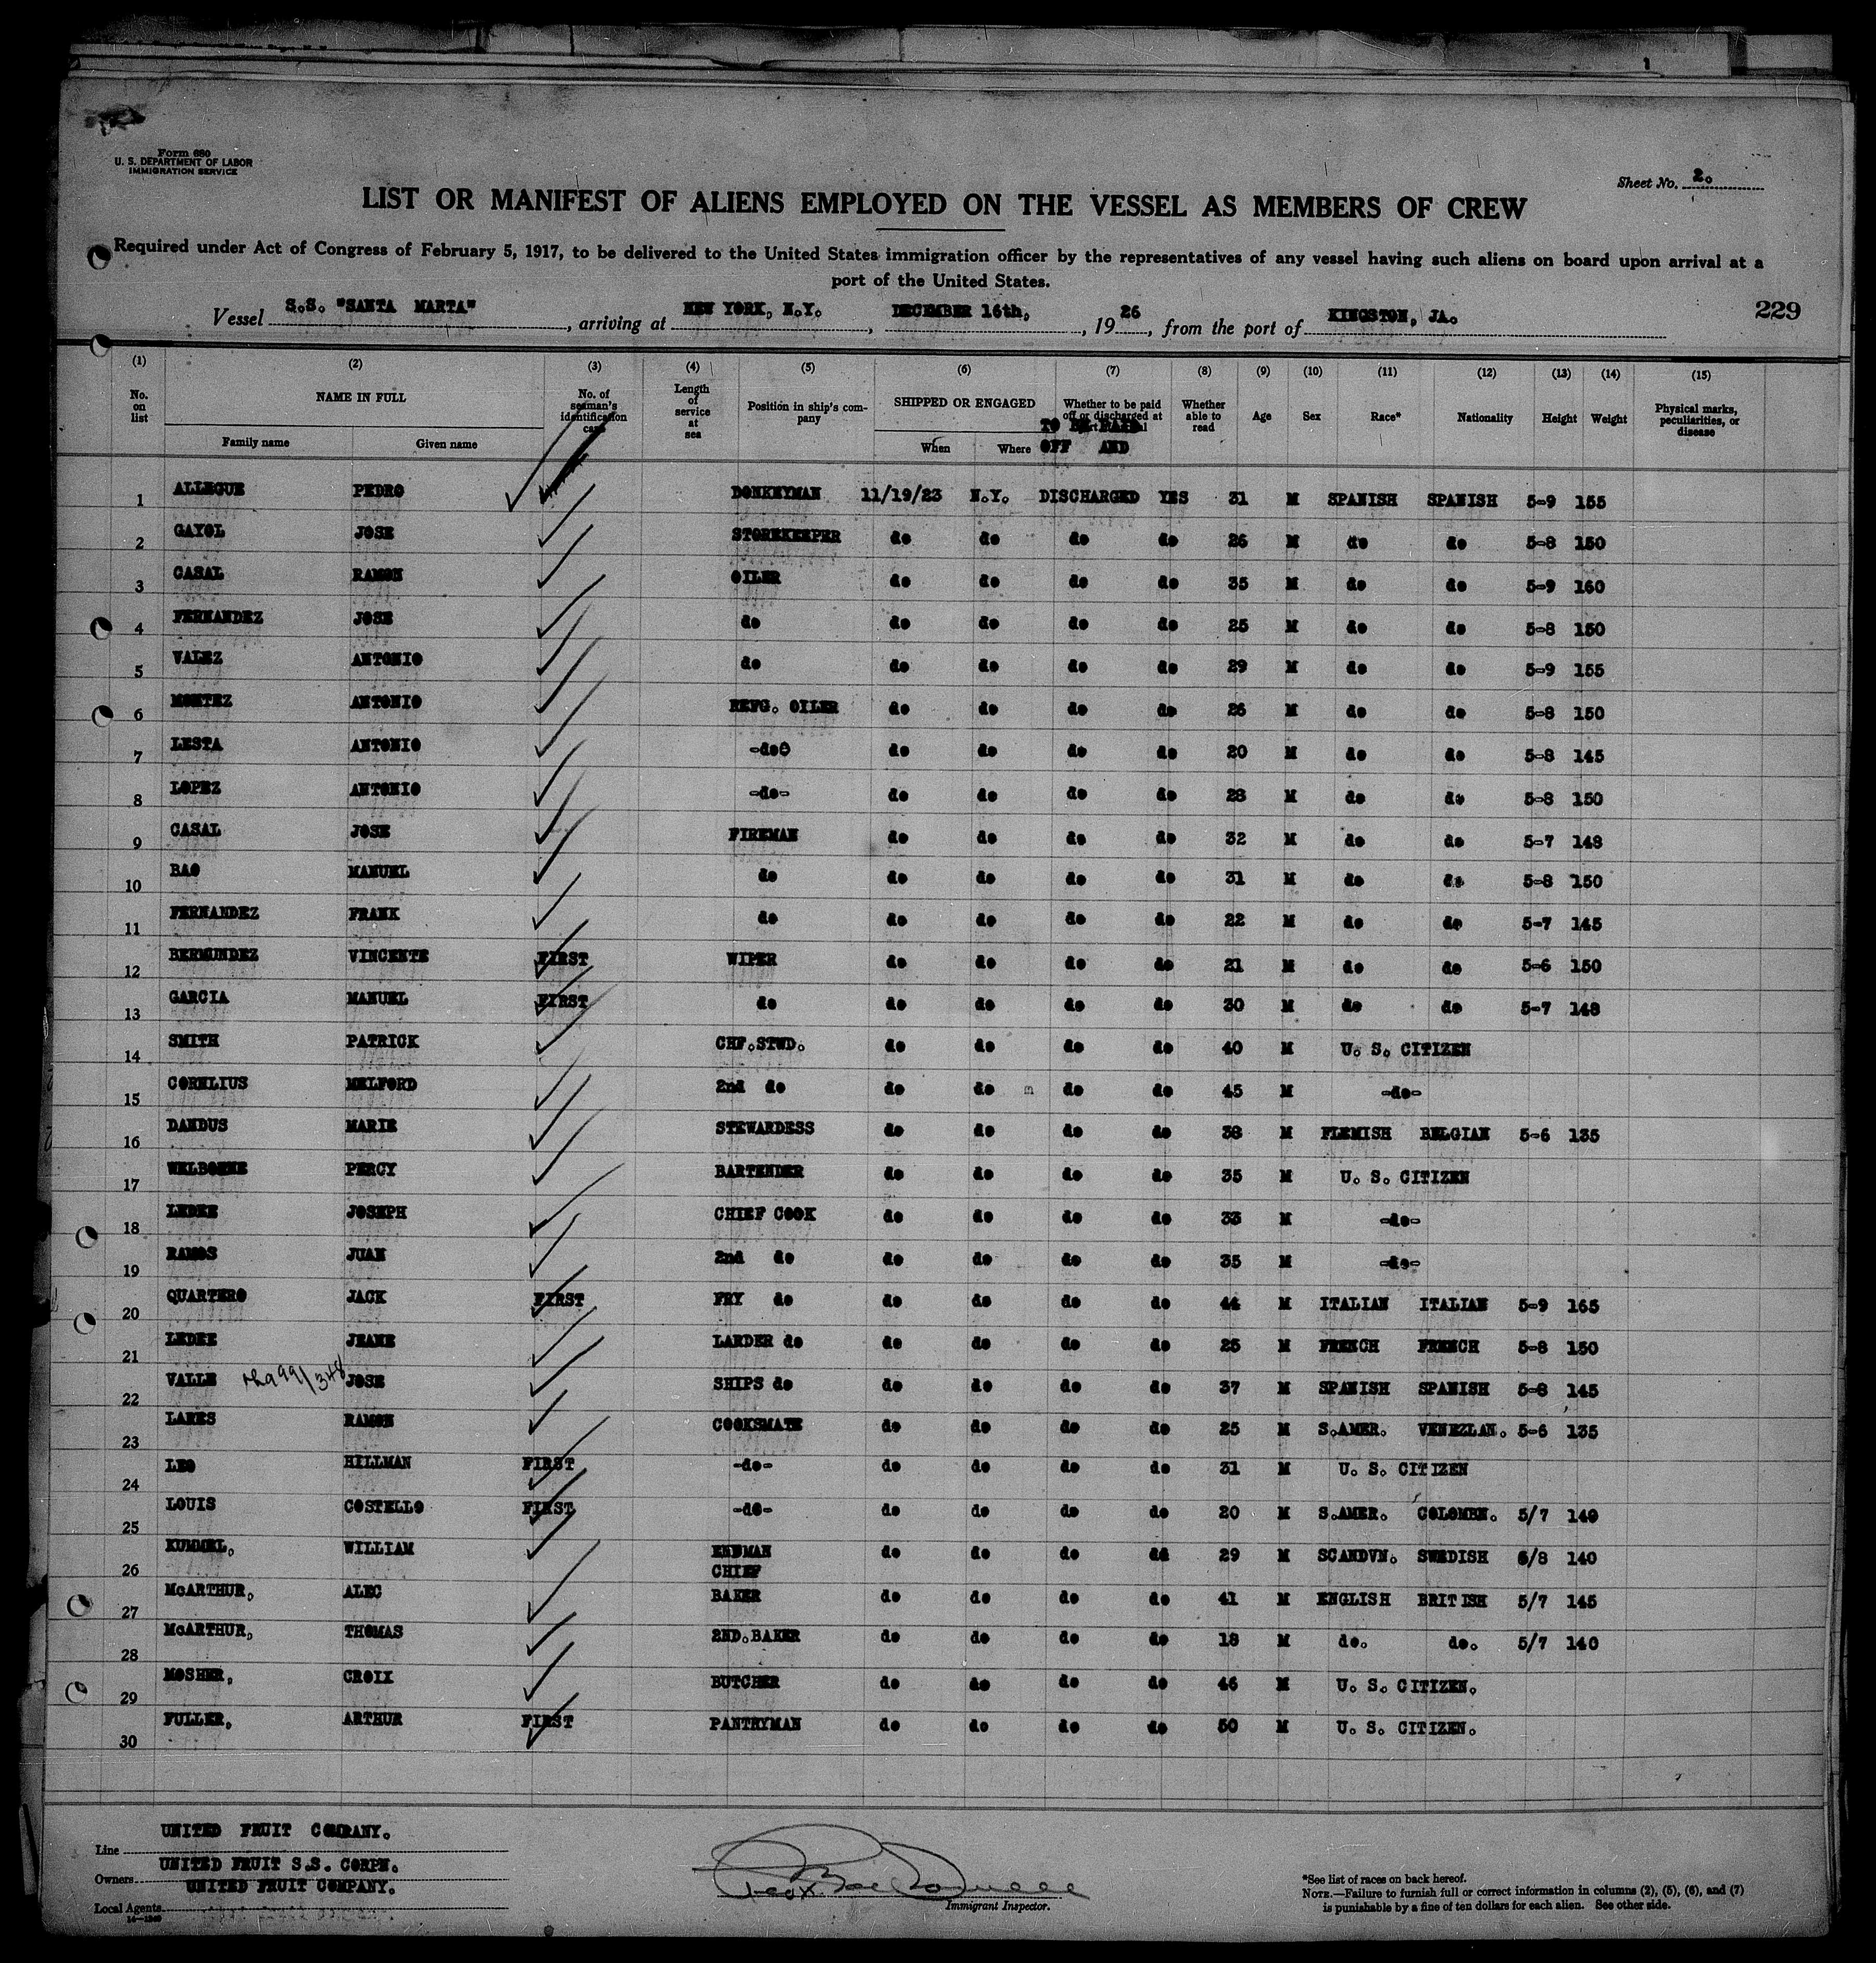 Form 680
U. S. DEPARTMENT OF LABOR
IMMIGRATION SERVICE
Sheet No. 2.
LIST OR MANIFEST OF ALIENS EMPLOYED ON THE VESSEL AS MEMBERS OF CREW
Required under Act of Congress of February 5, 1917, to be delivered to the United States immigration officer by the representatives of any vessel having such aliens on board upon arrival at a
port of the United States.
229
Vessel S.S. "SANTA MARTA", arriving at NEW YORK, N.Y., DECEMBER 16th, 1926, from the port of KINGSTON, JA.
(1) (2) (3) (4) (5) (6) (7) (8) (9) (10) (11) (12) (13) (14) (15)
No. on list NAME IN FULL Family name Given name No. of seaman's identification card Length of service at sea Position in ship's company SHIPPED OR ENGAGED When Where Whether to be paid off or discharged at Whether able to read Age Sex Race* Nationality Height Weight Physical marks, peculiarities, or disease
TO BE PAID
OFF AND
1 ALLEGUE PEDRO DONKEYMAN 11/19/23 N.Y. DISCHARGED YES 31 M SPANISH SPANISH 5-9 155
2 GAYOL JOSE STOREKEEPER do do do do 26 M do do 5-8 150
3 CASAL RAMON OILER do do do do 35 M do do 5-9 160
4 FERNANDEZ JOSE do do do do do 25 M do do 5-8 150
5 VALEZ ANTONIO do do do do do 29 M do do 5-9 155
6 MONTEZ ANTONIO REFG. OILER do do do do 26 M do do 5-8 150
7 LESTA ANTONIO -do do do do do 20 M do do 5-8 145
8 LOPEZ ANTONIO -do- do do do do 28 M do do 5-8 150
9 CASAL JOSE FIREMAN do do do do 32 M do do 5-7 148
10 BAO MANUEL do do do do do 31 M do do 5-8 150
11 FERNANDEZ FRANK do do do do do 22 M do do 5-7 145
12 BERMUNDEZ VINCENTE FIRST WIPER do do do do 21 M do do 5-6 150
13 GARCIA MANUEL FIRST do do do do do 30 M do do 5-7 148
14 SMITH PATRICK CHF.STWD. do do do do 40 M U. S. CITIZEN
15 CORNLIUS MELFORD 2nd do do do do do 45 M -do-
16 DANDUS MARIE STEWARDESS do do do do 38 M FLEMISH BELGIAN 5-6 135
17 WELBORNE PERCY BARTENDER do do do do 35 M U. S. CITIZEN
18 LEDEE JOSEPH CHIEF COOK do do do do 33 M -do-
19 RAMOS JUAN 2nd do do do do do 35 M -do-
20 QUARTERO JACK FIRST FRY do do do do do 44 M ITALIAN ITALIAN 5-9 165
21 LEDEE JEANE LARDER do do do do do 25 M FRENCH FRENCH 5-8 150
22 VALLE JOSE SHIPS do do do do do 37 M SPANISH SPANISH 5-8 145
23 LARES RAMON COOKSMATE do do do do 25 M S.AMER. VENEZLAN. 5-6 135
24 LEO HILLMAN FIRST -do- do do do do 31 M U. S. CITIZEN
25 LOUIS COSTELLO FIRST -do- do do do do 20 M S.AMER. COLOMBN. 5/7 140
26 KUMMEL, WILLIAM do do do do 29 M SCANDVN. SWEDISH 5/8 140
27 McARTHUR, ALEC CHIEF BAKER do do do do 41 M ENGLISH BRITISH 5/7 145
28 McARTHUR, THOMAS 2ND.BAKER do do do do 18 M do. do. 5/7 140
29 MOSHER, CROIX BUTCHER do do do do 46 M U. S. CITIZEN.
30 FULLER, ARTHUR FIRST PANTRYMAN do do do do 50 M U. S. CITIZEN.
Line UNITED FRUIT COMPANY.
Owners UNITED FRUIT S.S. CORPN.
Local Agents UNITED FRUIT COMPANY.
14-1240
Immigrant Inspector.
*See list of races on back hereof.
NOTE.—Failure to furnish full or correct information in columns (2), (5), (6), and (7)
is punishable by a fine of ten dollars for each alien. See other side.